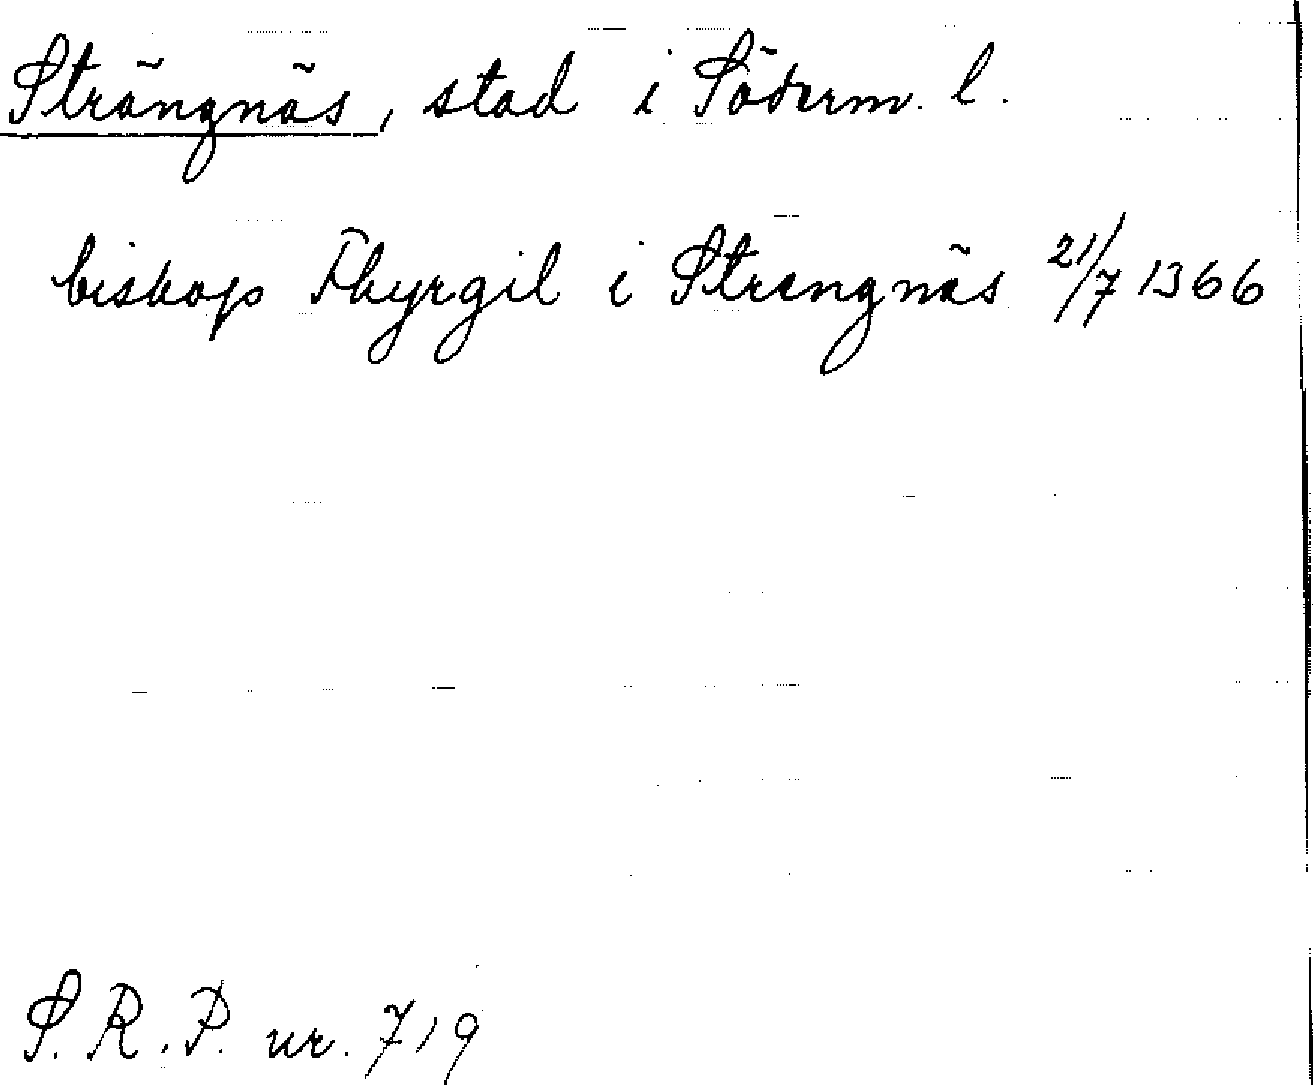 Strängnäs, stad i Söderm. l.
biskop Thyrgil i Strengnäs 21/7 1366
S.R.P. nr. 719